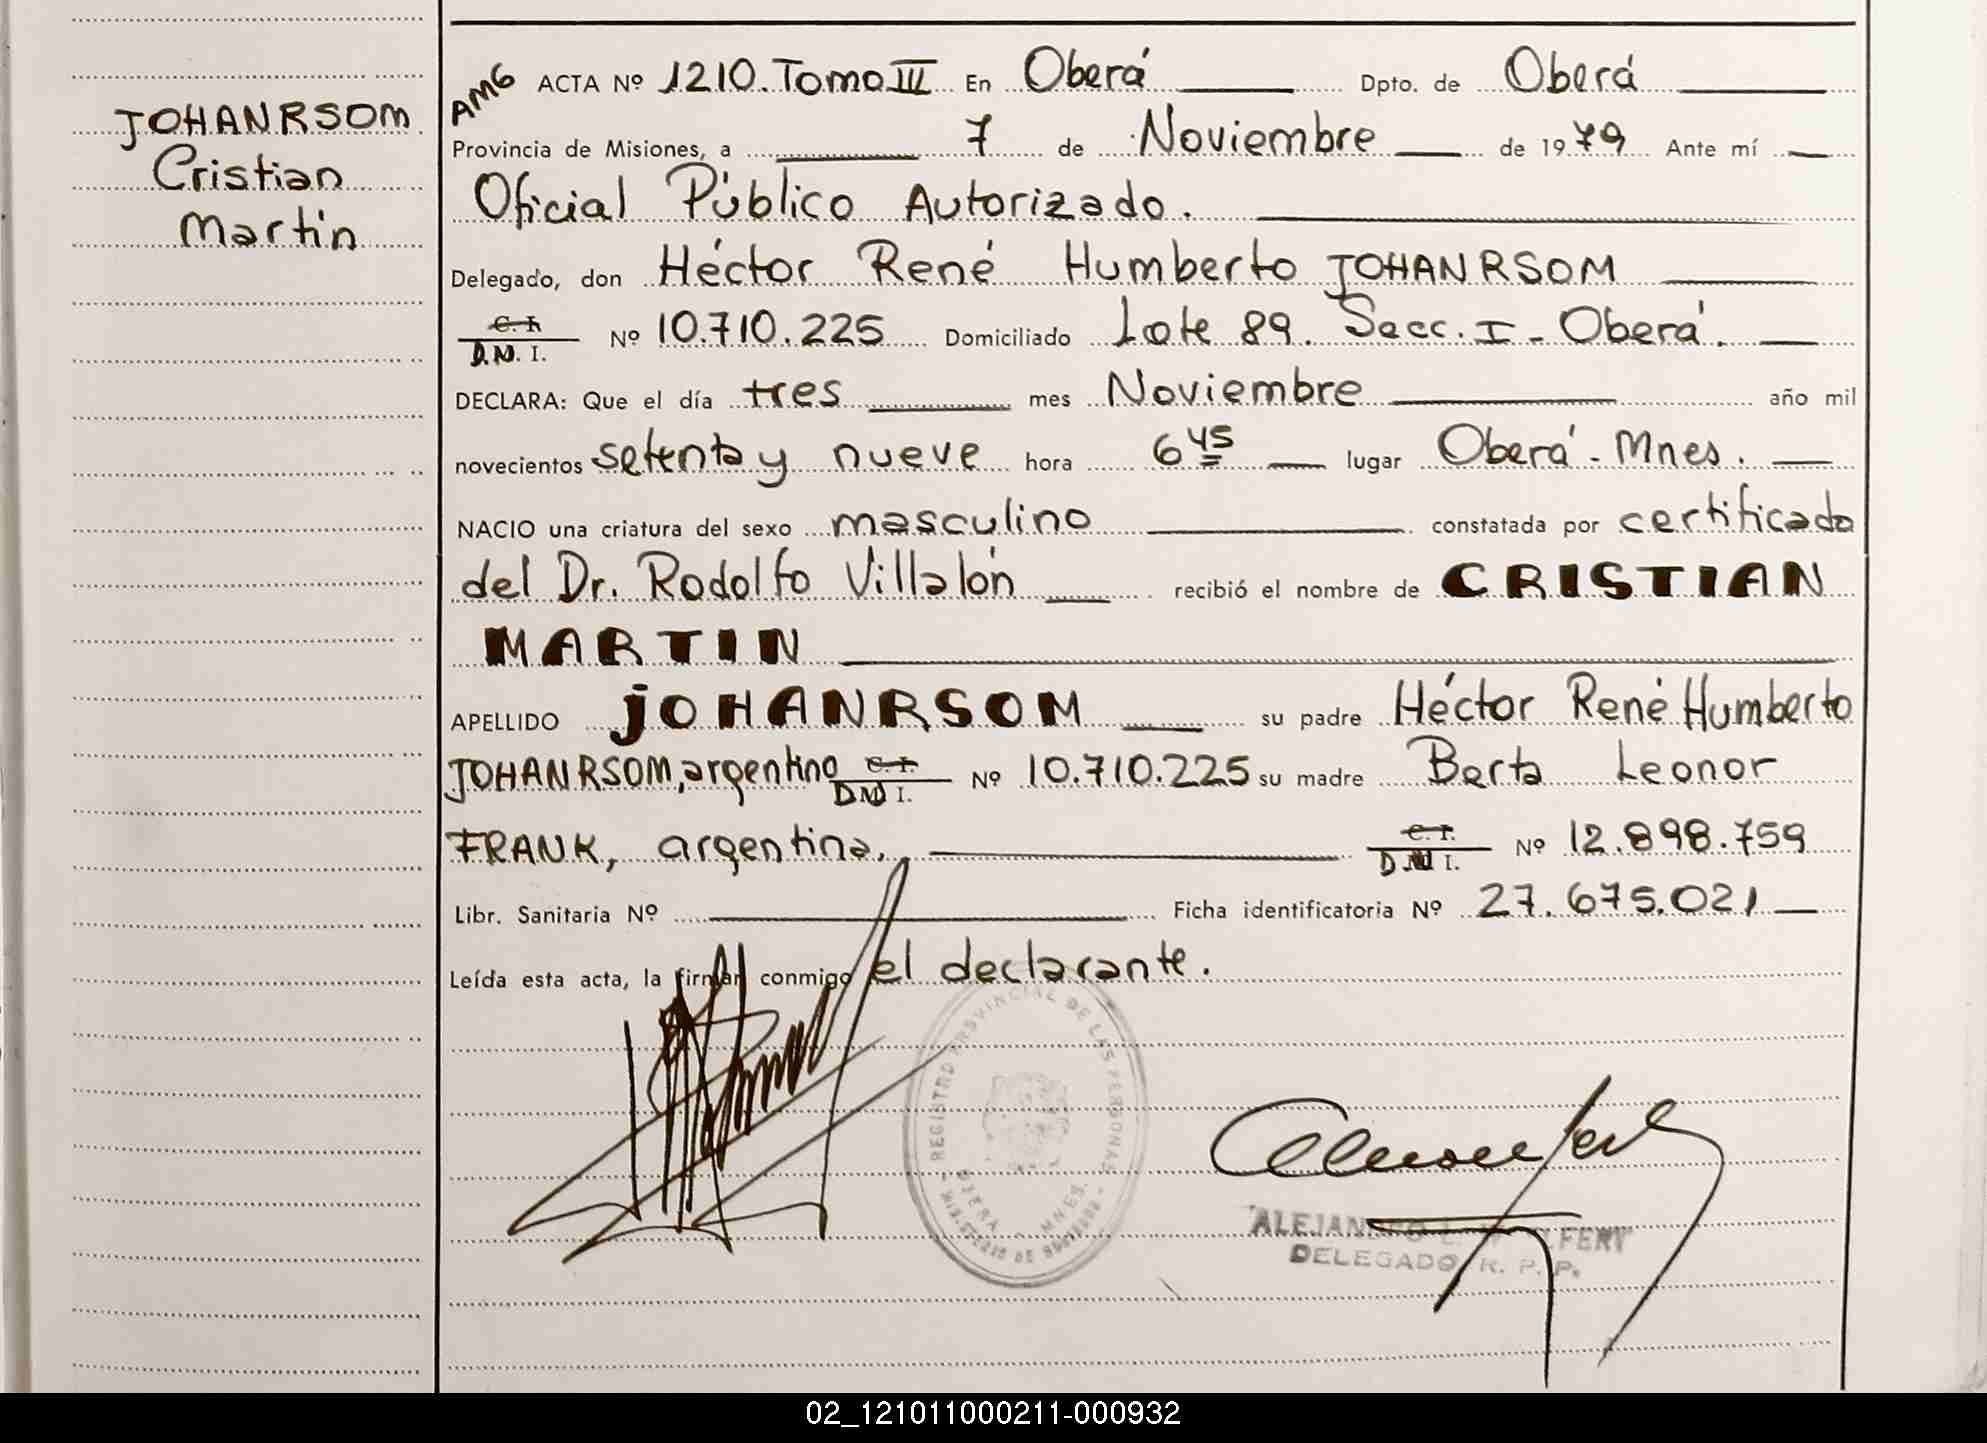 JOHANRSOM
Cristian
Martin
AMG ACTA Nº 1210. Tomo III En Oberá Dpto. de Oberá
Provincia de Misiones, a 7 de Noviembre de 1979 Ante mí
Oficial Público Autorizado.
Delegado, don Héctor René Humberto JOHANRSOM
C. I. D.N.I. Nº 10.710.225 Domiciliado Lote 89. Secc. I - Oberá.
DECLARA: Que el día tres mes Noviembre año mil
novecientos setenta y nueve hora 6 45 lugar Oberá - Mnes.
NACIO una criatura del sexo masculino constatada por certificado
del Dr. Rodolfo Villalón recibió el nombre de CRISTIAN
MARTIN
APELLIDO JOHANRSOM su padre Héctor René Humberto
JOHANRSOM, argentino C. I. D.N.I. Nº 10.710.225 su madre Berta Leonor
FRANK, argentina. C. I. D.N.I. Nº 12.898.759
Libr. Sanitaria Nº Ficha identificatoria Nº 27.675.021
Leída esta acta, la firman conmigo el declarante.
REGISTRO PROVINCIAL DE LAS PERSONAS
OBERA - MNES.
MINISTERIO DE GOBIERNO
DELEGADO R. P. P.
02_121011000211-000932